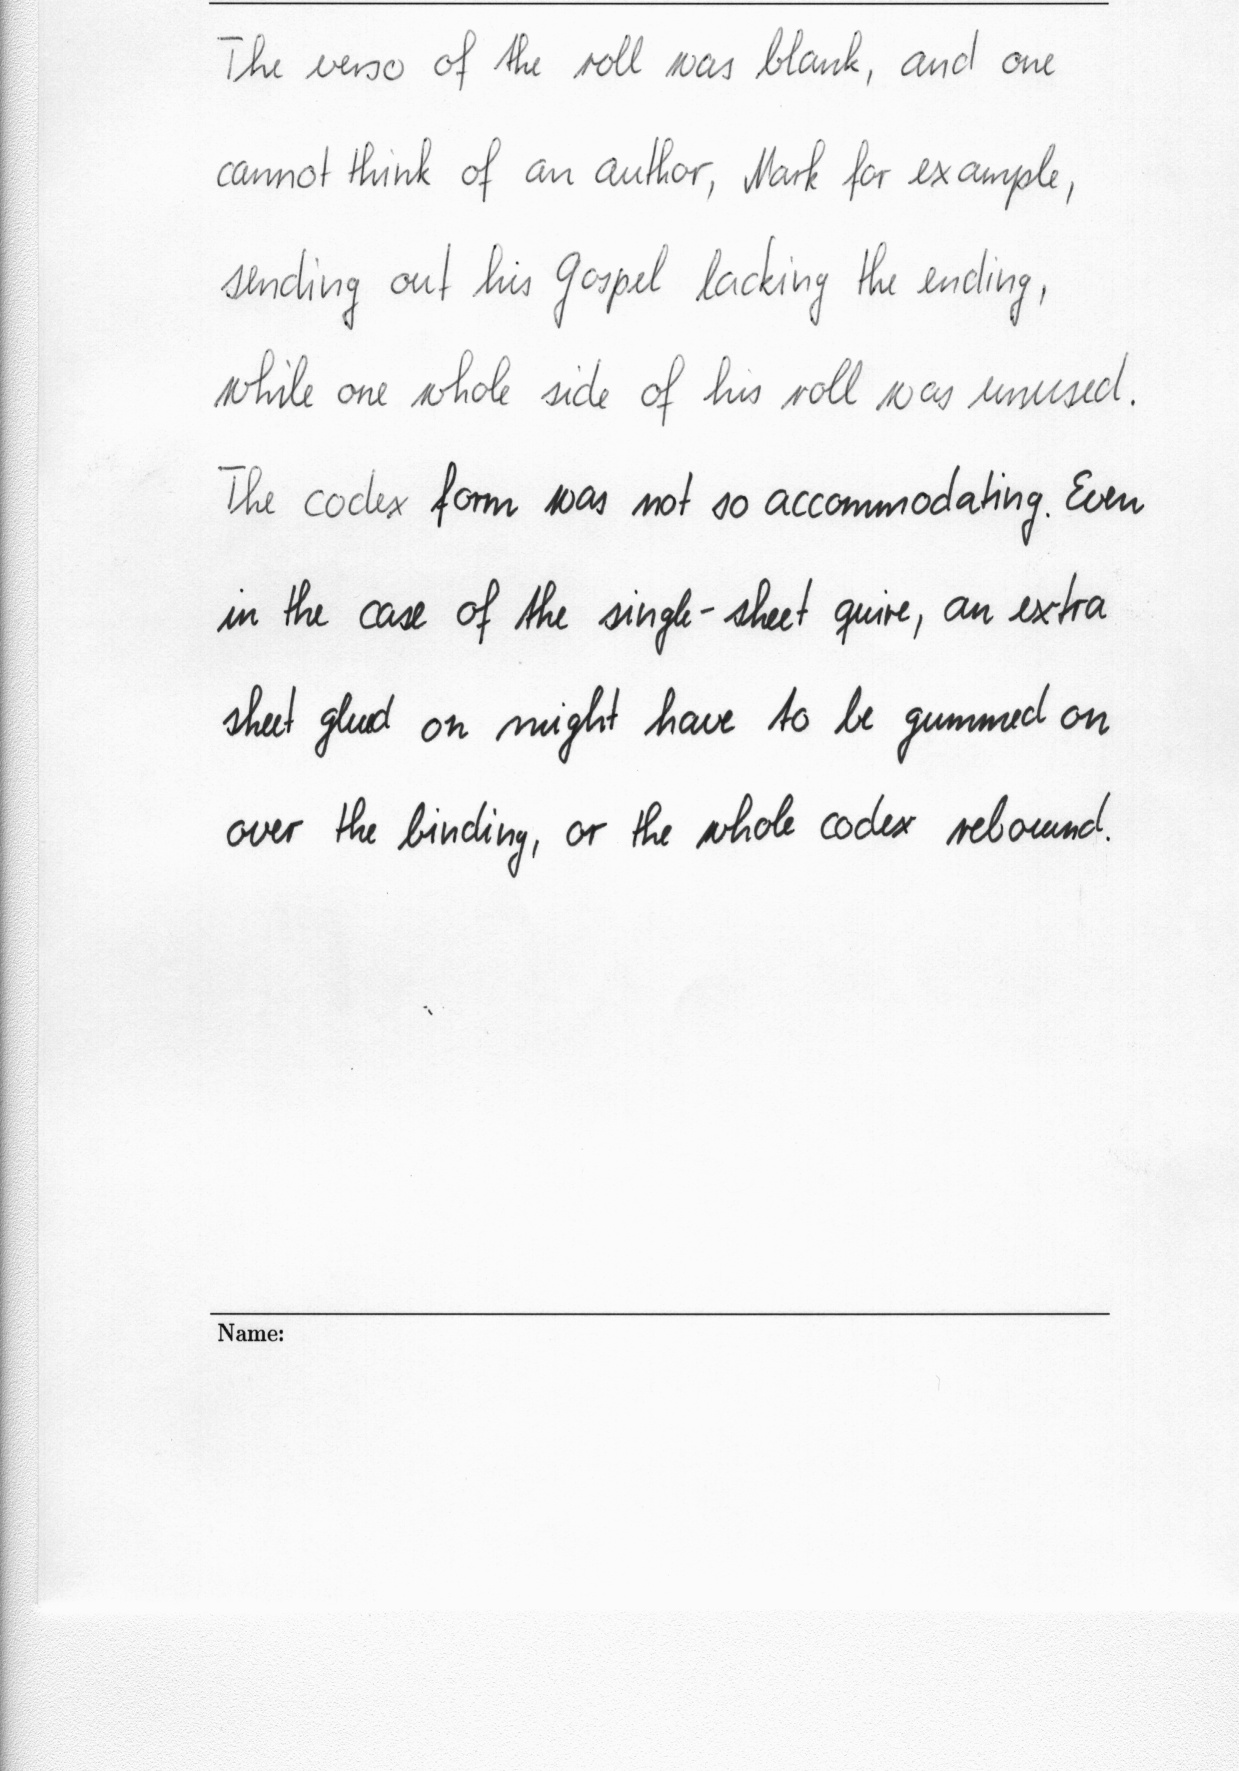 The verso of the roll was blank, and one
cannot think of an author, Mark for example,
sending out his Gospel lacking the ending,
while one whole side of his roll was unused.
The codex form was not so accommodating. Even
in the case of the single-sheet quire, an extra
sheet glued on might have to be gummed on
over the binding, or the whole codex rebound.
Name: